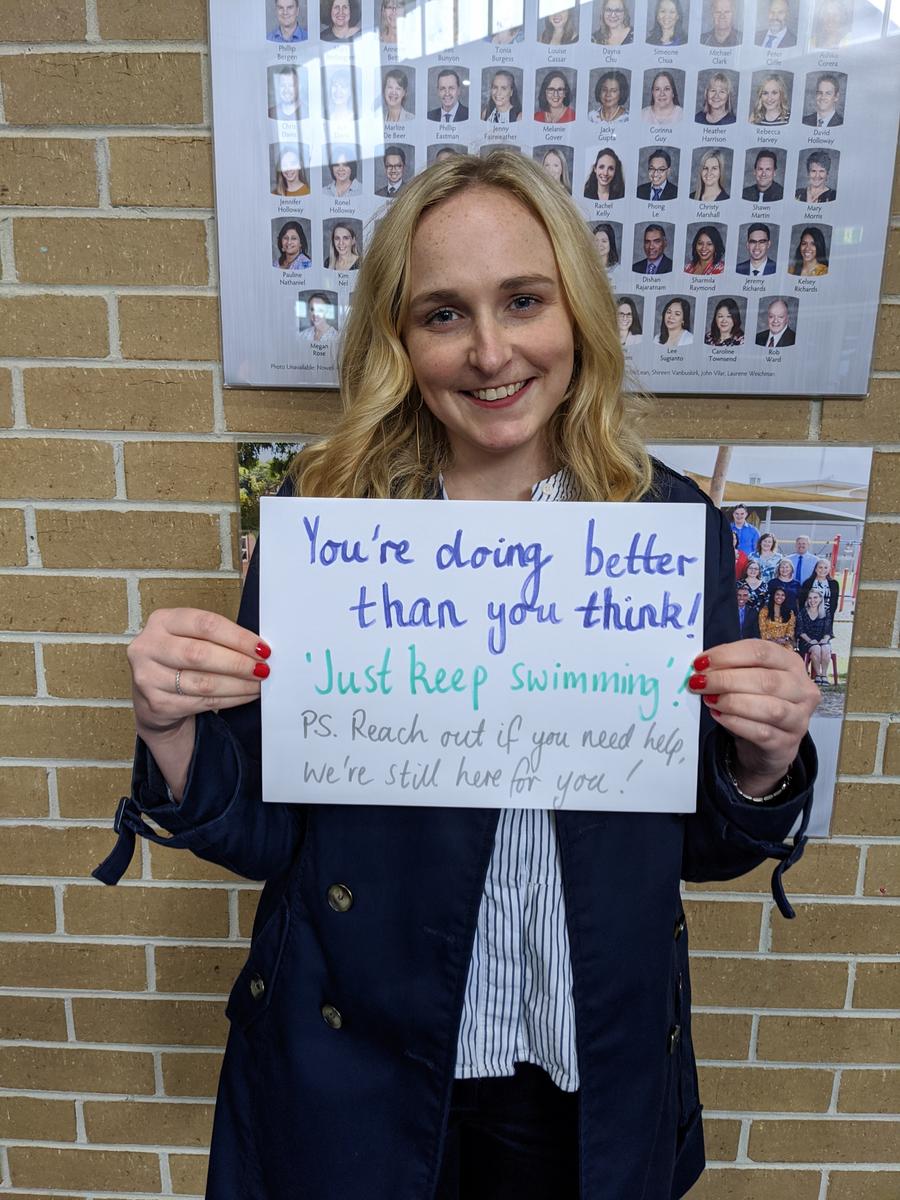 Phillip
Bergen
Tonia
Burgess
Louise
Cassar
Dayna
Chu
Simeone
Chua
Michael
Clark
Peter
Corera
Marlize
De Beer
Phillip
Eastman
Jenny
Fairweather
Melanie
Gover
Jacky
Gupta
Corinna
Guy
Heather
Harrison
Rebecca
Harvey
David
Holloway
Jennifer
Holloway
Ronel
Holloway
Rachel
Kelly
Phong
Le
Christy
Marshall
Shawn
Martin
Mary
Morris
Pauline
Nathaniel
Kim
Nel
Dishan
Rajaratnam
Sharmila
Raymond
Jeremy
Richards
Kelsey
Richards
Megan
Rose
Lee
Sugianto
Caroline
Townsend
Rob
Ward
Photo Unavailable:
Shireen Vanbuskirk, John Vilar, Laurene Weichman
You're doing better
than you think!
'Just keep swimming'!
PS. Reach out if you need help,
we're still here for you!